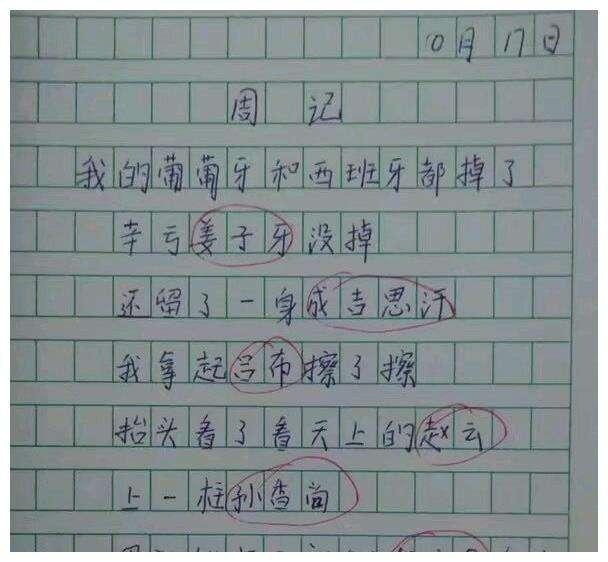 10月17日
周记
我的葡葡牙和西班牙都掉了
辛亏姜子牙没掉
还留了一身成吉思汗
我拿起吕布擦了擦
抬头看了看天上的赵云
上一柱孙香尚